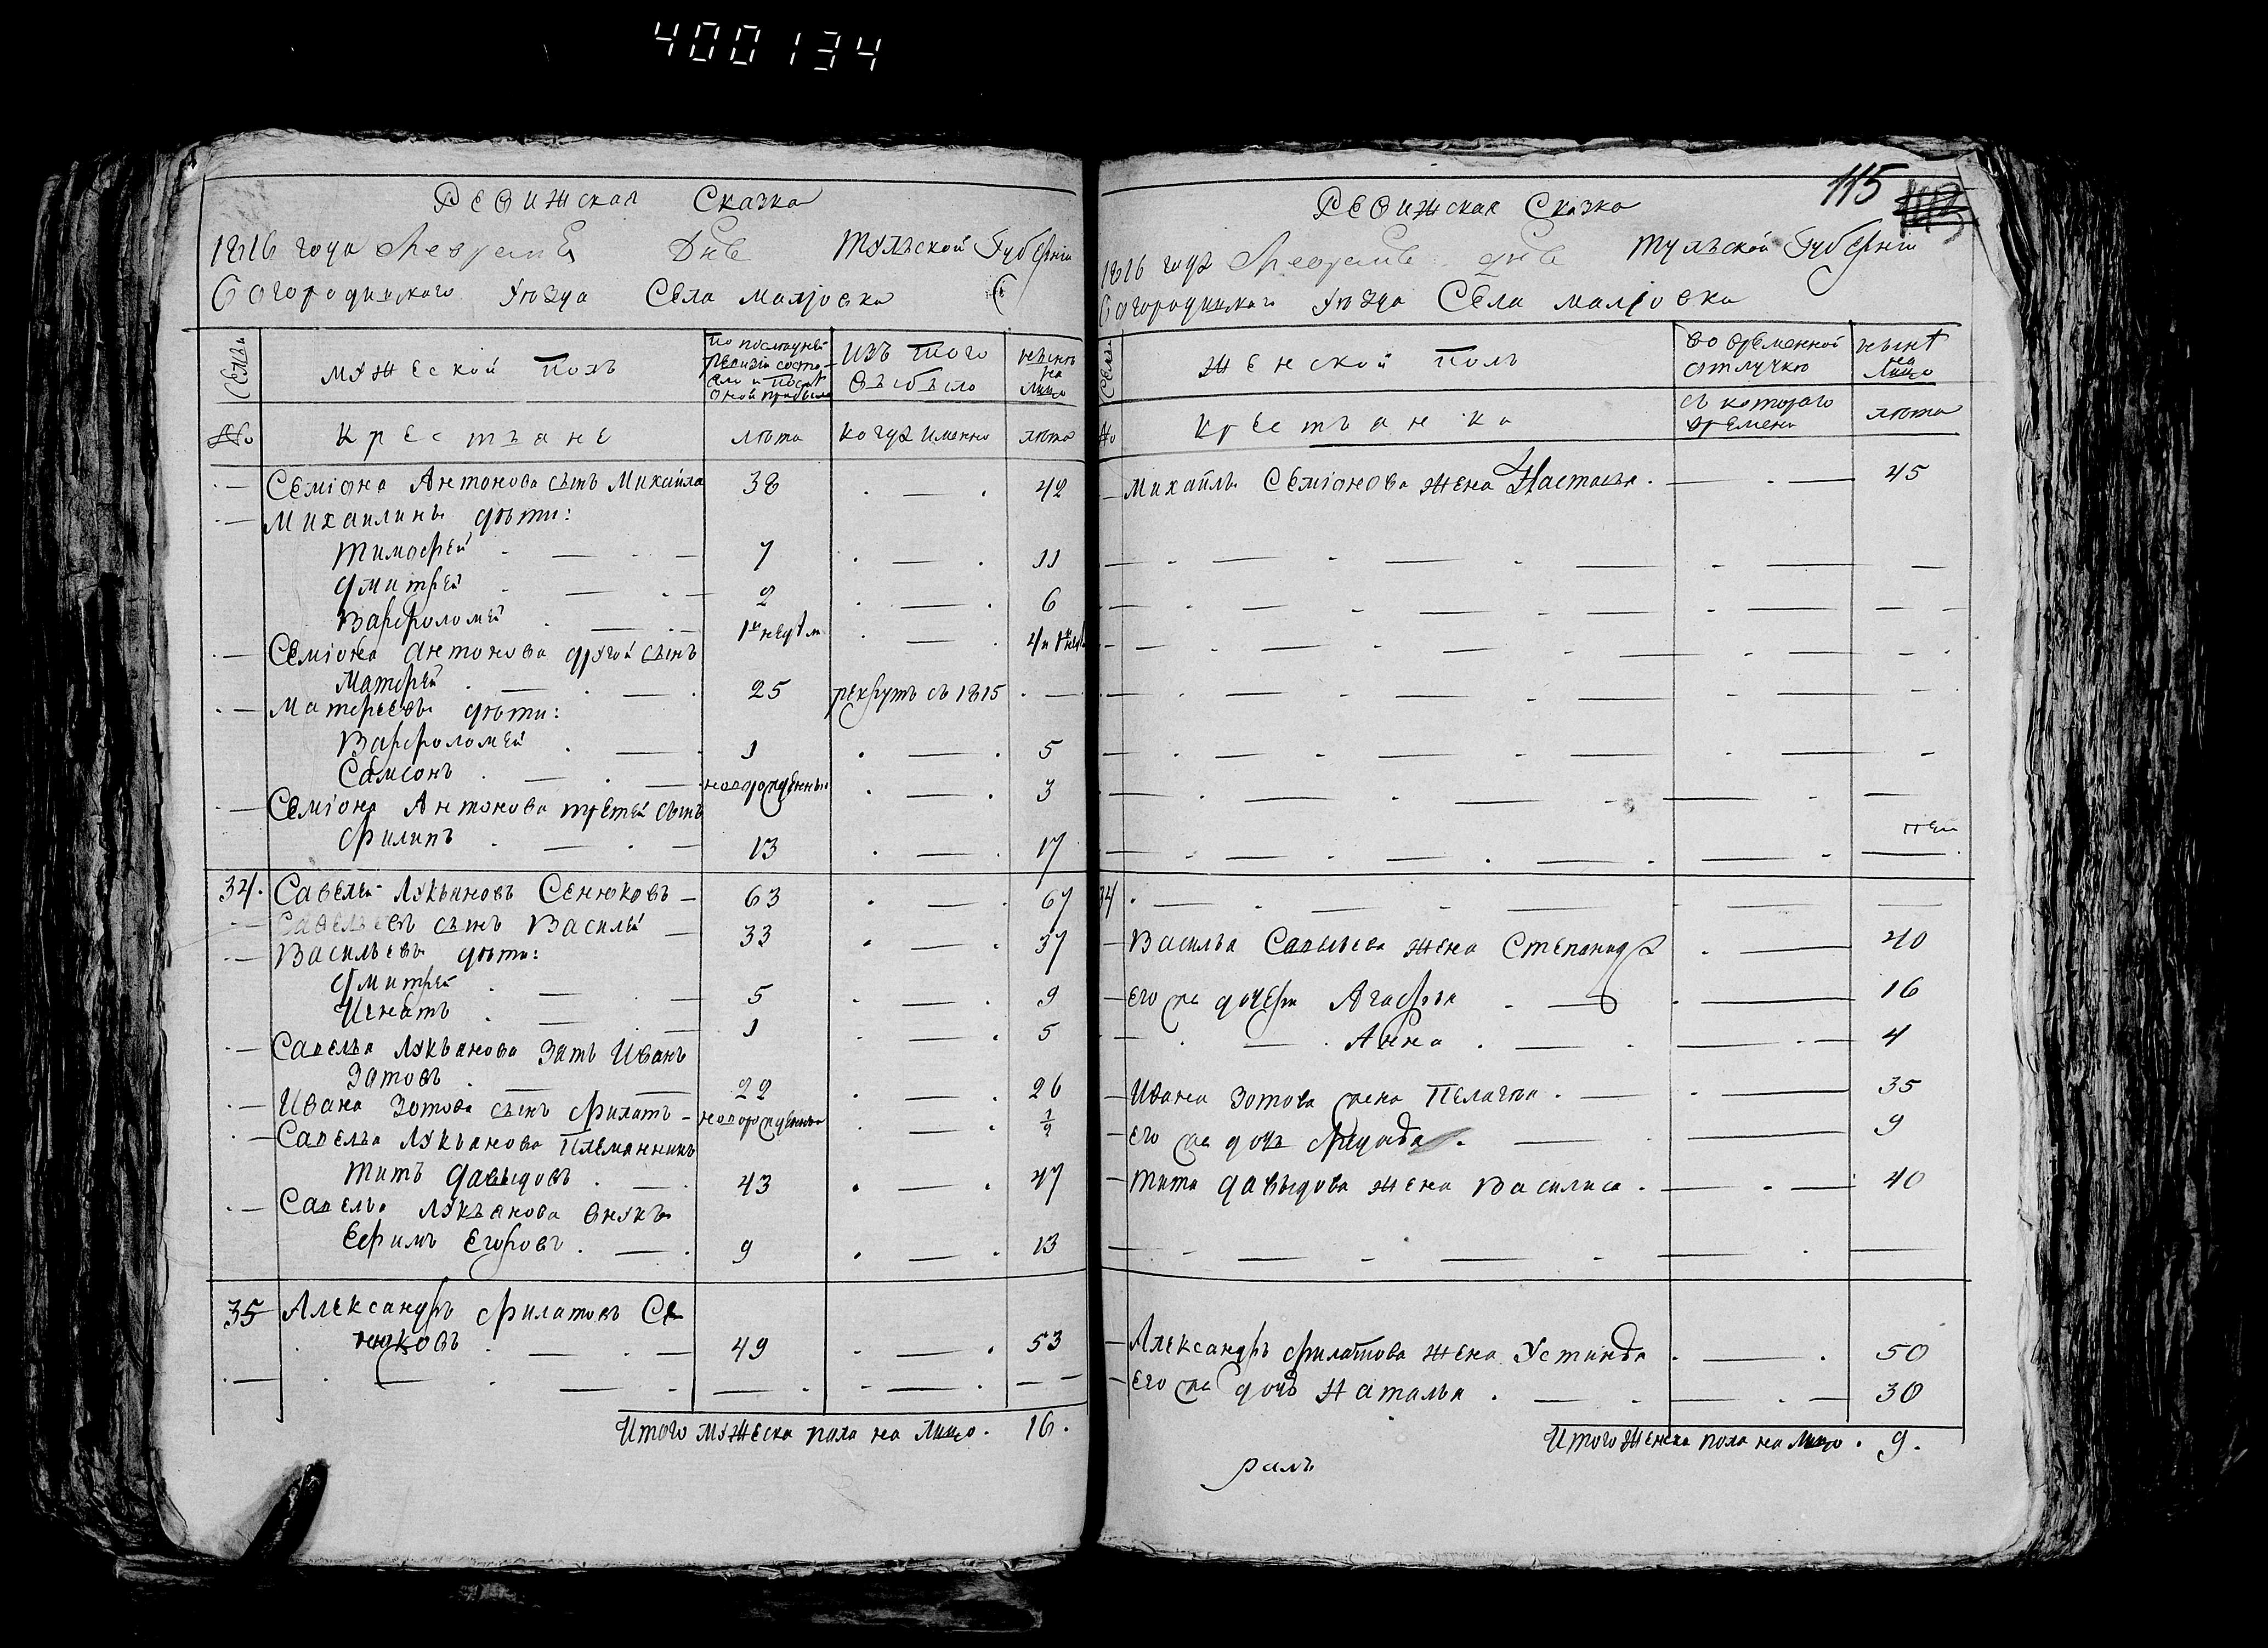 400134
Ревижская Сказка
1816 года Февраля Дня Тульской Губерни
Богородицкого уезда Села малiовка
Семьи
мужеской полъ
По последней ревизiи состояло и после оной прибыло
Изъ того выбыло
ныне на лицо
№
крестьяне
лета
когда именно
лета
Семiона Антонова сынъ Михайла 38 42
Михаилины дети:
Тимофей 7 11
Дмитрей 2 6
Варфоломей
Семiона Антонова другой сынъ
Матфей 25 рекрутъ въ 1815
Матфеевы дети:
Варфоломей 1 5
Самсонъ новорожденны 3
Семiона Антонова третей сынъ
Филипъ 13 17
34. Савелей Лукьяновъ Сенюковъ 63 67
Савельевъ сынъ Василей 33 37
Васильевы дети:
Дмитрей 5 9
Игнатъ 1 5
Савелья Лукьянова Зять Иванъ
Зотовъ 22 26
Ивана Зотова сынъ Филатъ новорожденны 1/2
Савелья Лукьянова племянникъ
Титъ Давыдовъ 43 47
Савелья Лукьянова внукъ
Ефимъ Егоровъ 9 13
35 Александръ Филатовъ Се
нюковъ 49 53
Итого мужеска пола на лицо. 16.
115
Ревижская Сказка
1816 года Февраля дня Тульской Губернiи
Богородицкаго уезда Села малiовка
Семьи
женской полъ
во временной отлучке
ныне на лицо
№
крестьянка
съ котораго времени
лета
Михайлы Семiонова жена Настасья 45
34
Василья Савельева жена Степанида 40
его же дочери Агафья 16
Анна 4
Ивана Зотова жена Пелагея 35
его же дочь 9
Тита Давыдова жена Василиса 40
Александръ Филатова жена Устинья 50
его же дочь Наталья 30
Итого женска пола на лицо. 9.